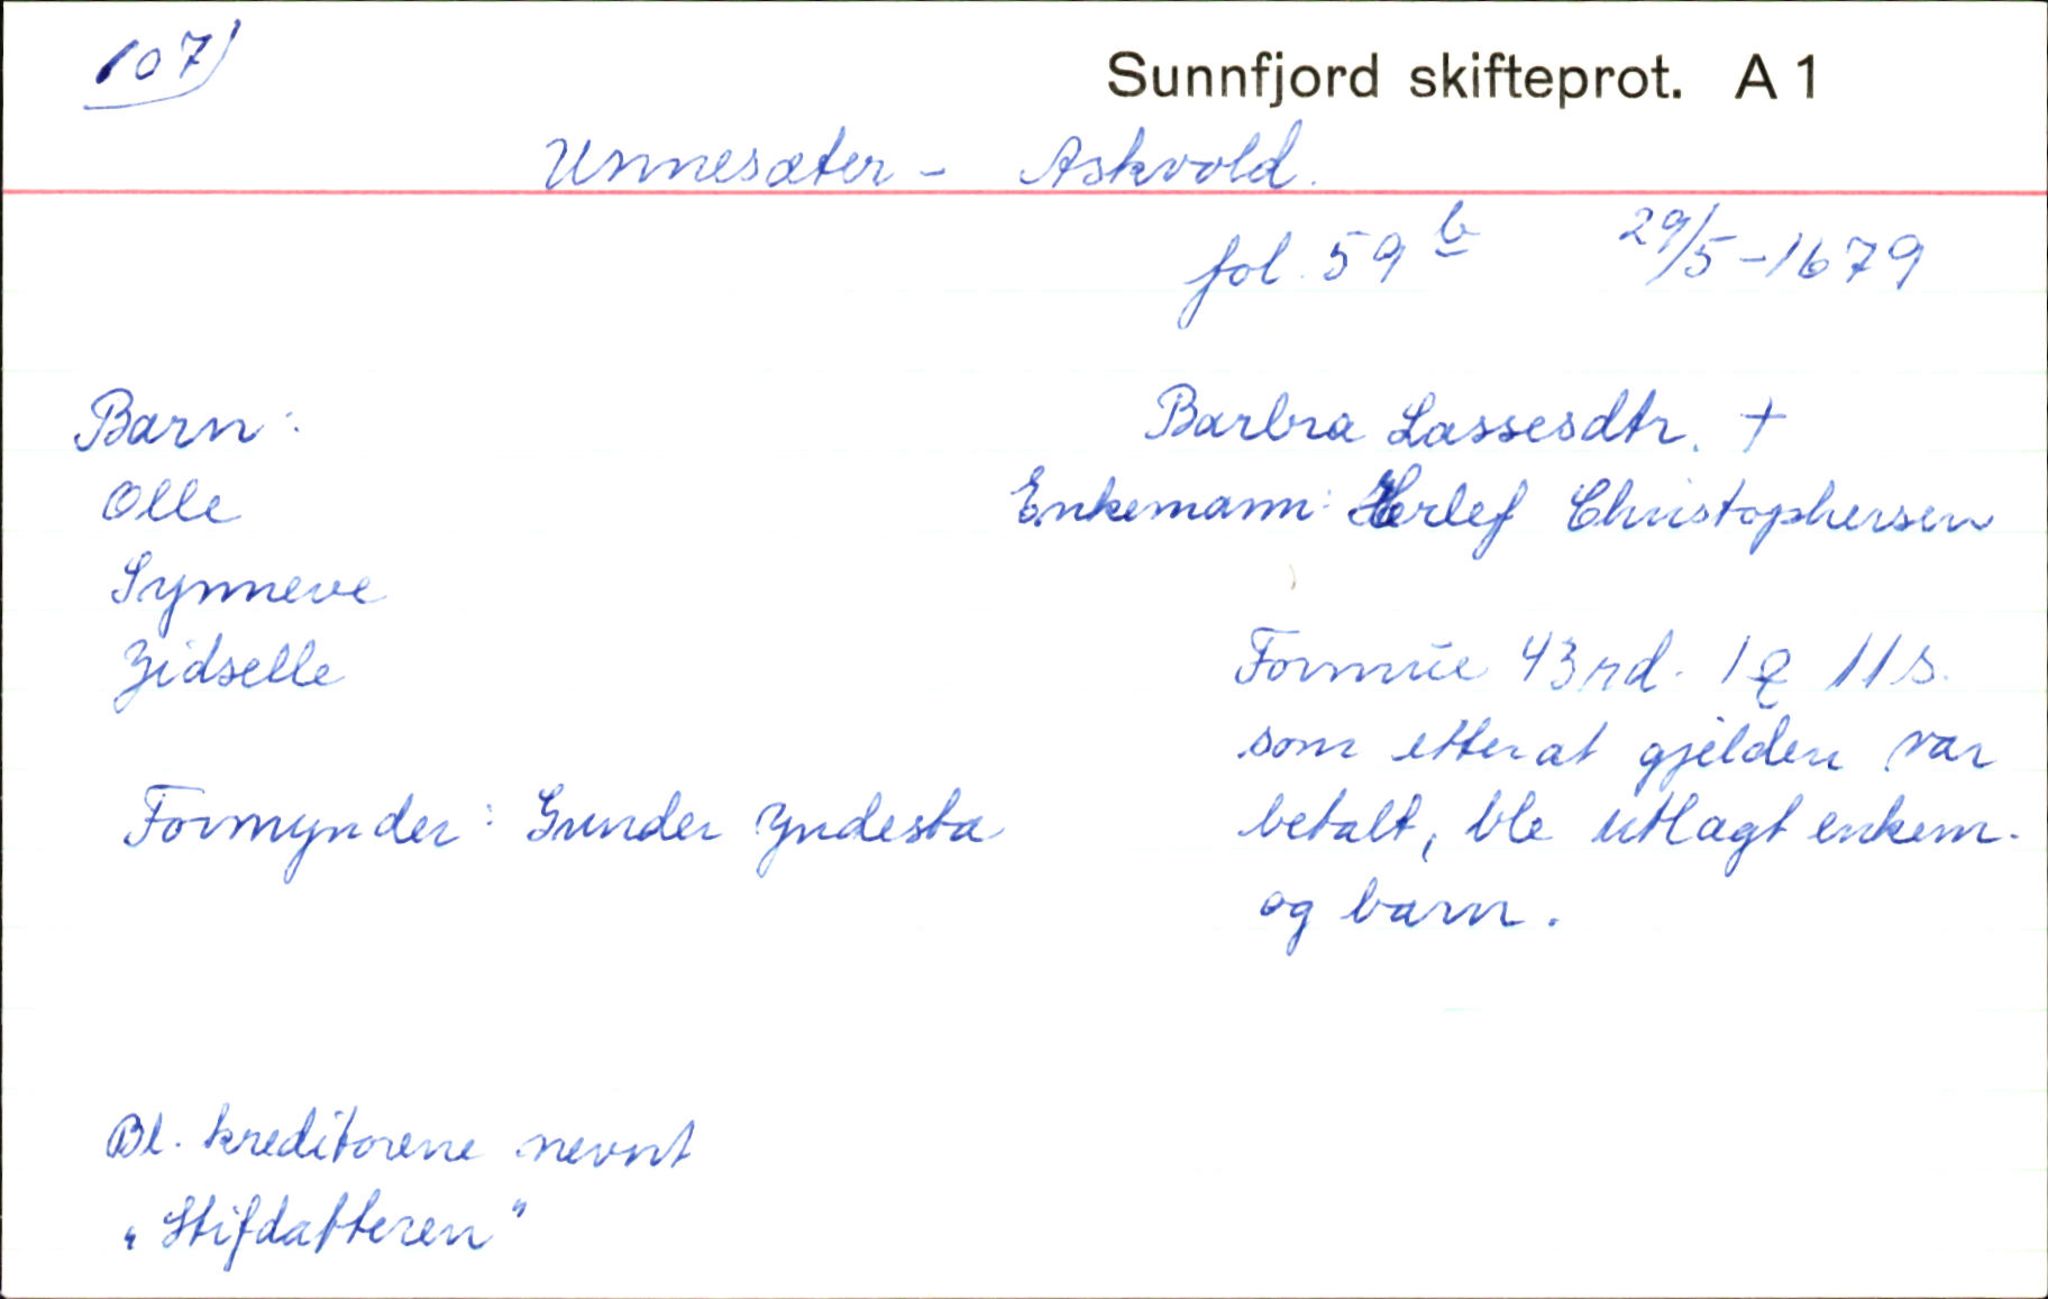 107)
Sunnfjord skifteprot. A 1
Unnesæter - Askvold.
fol. 59 b 29/5-1679
Barn: Barbra Lassesdtr. †
Olle Enkemann: Herlef Christophersen
Synneve
Zidselle Formue 43 rd. 1 11 s.
som etter at gjelden var
Formynder: Gunder Yndesta betalt, ble utlagt enkem.
og barn.
Bl. kreditorene nevnt
"Stifdatteren"